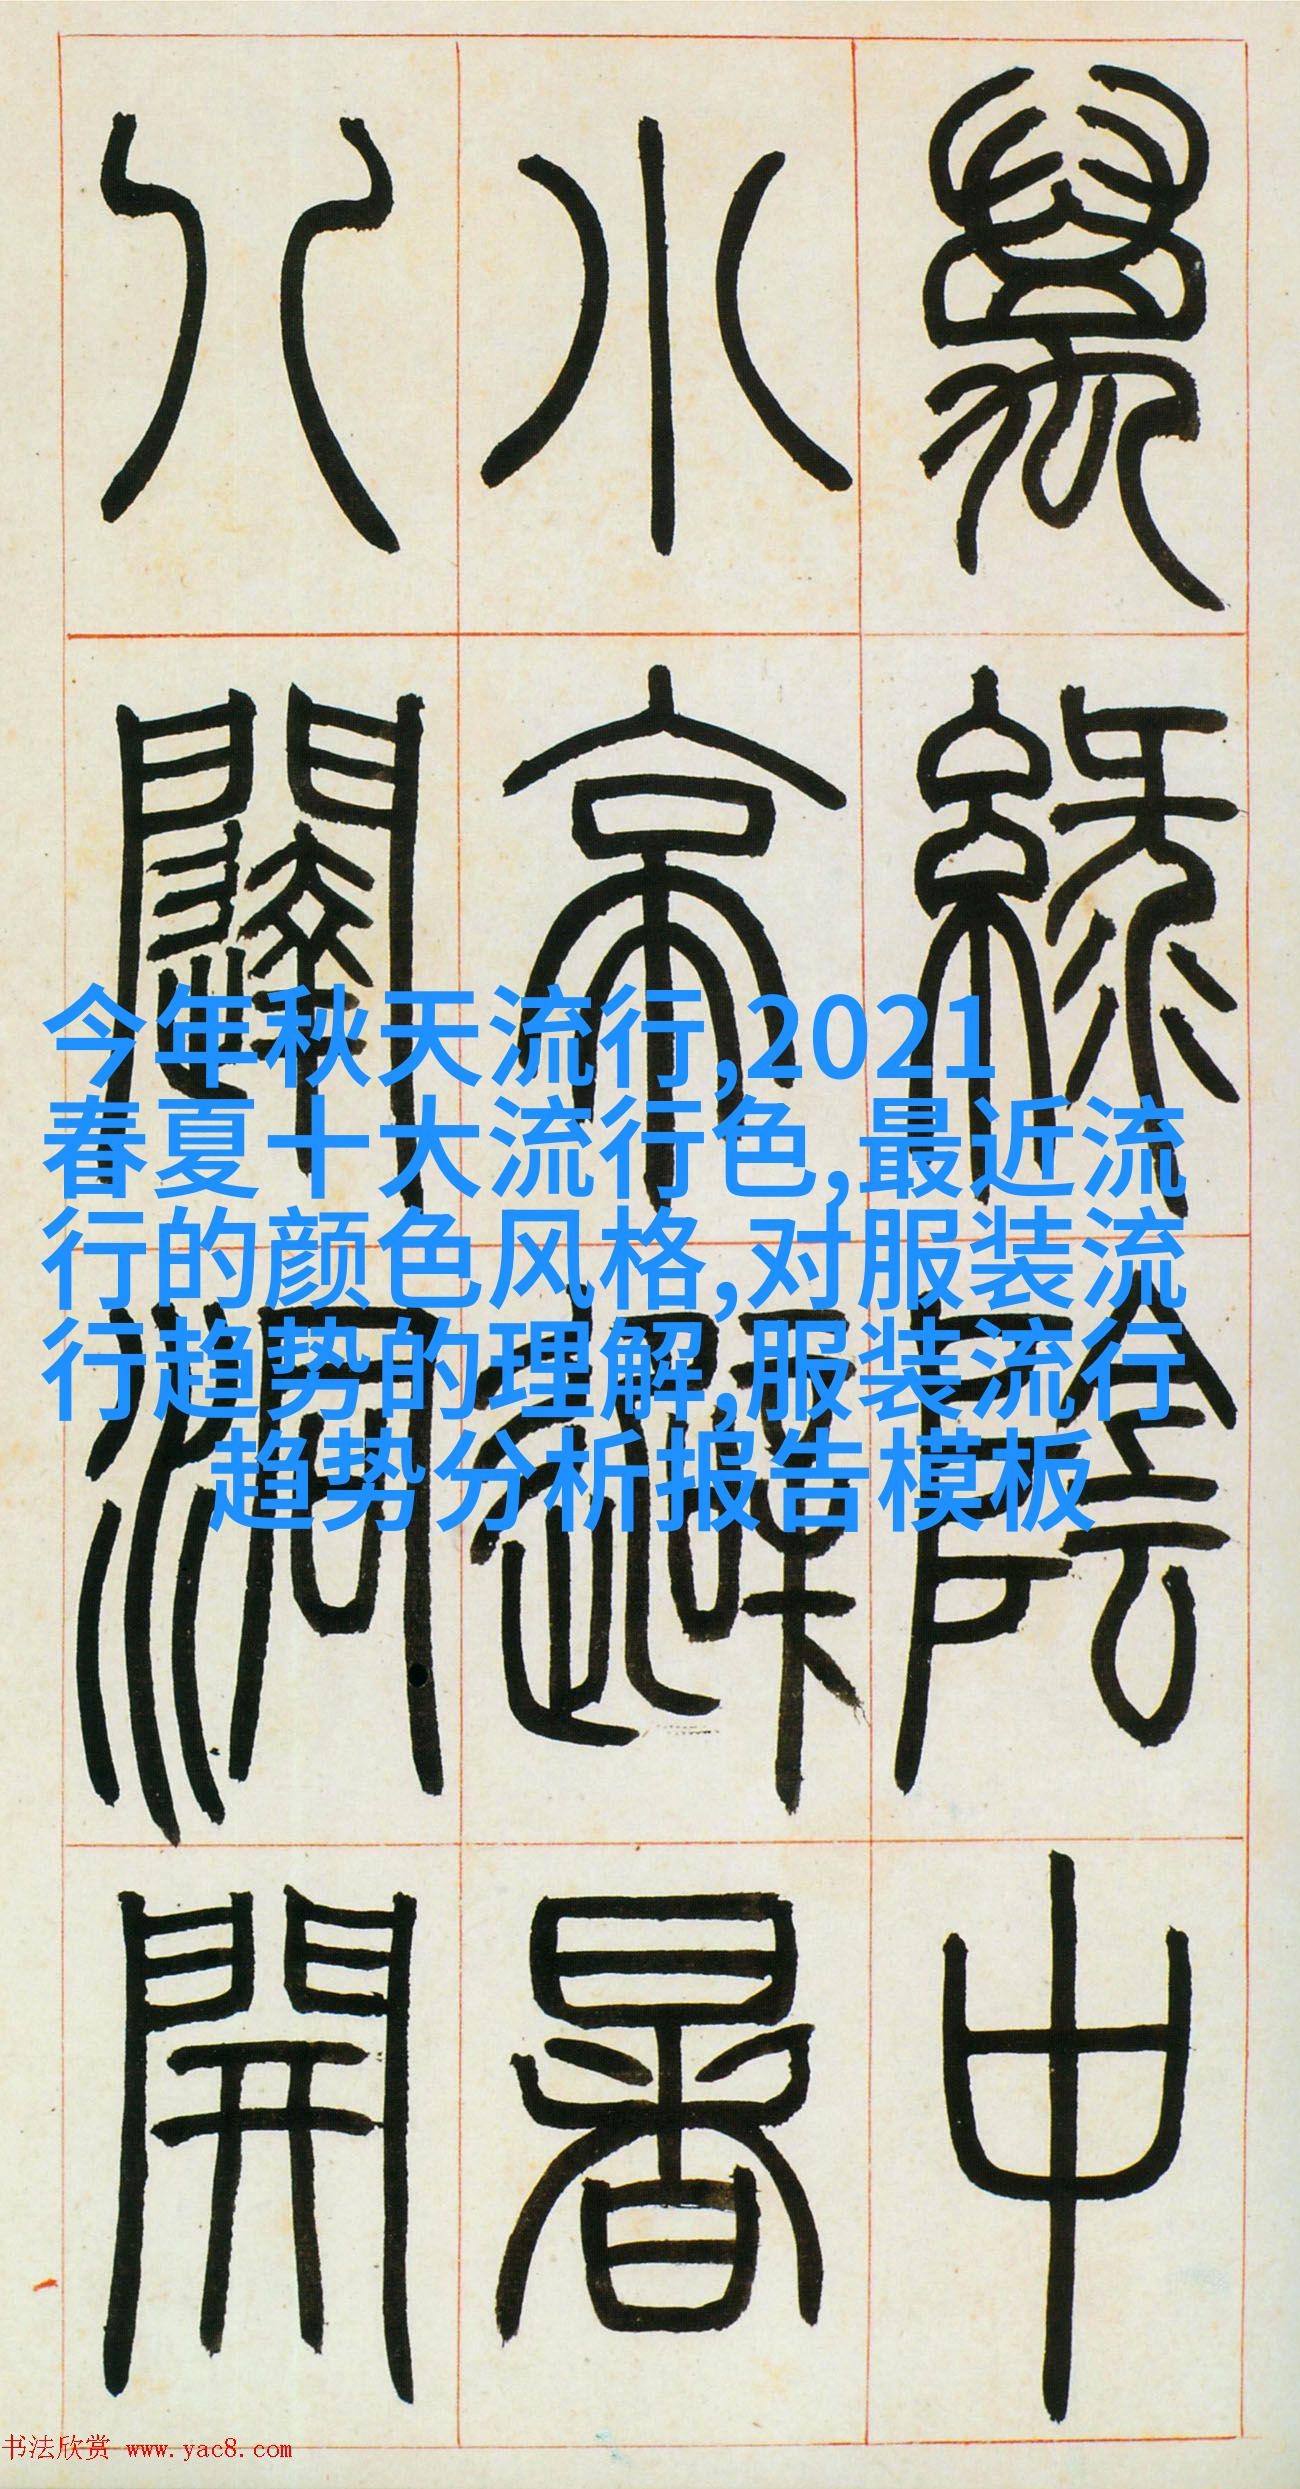 萬綠陰中
小亭避暑
八闥洞開
今年秋天流行,2021
春夏十大流行色,最近流
行的颜色风格,对服装流
行趋势的理解,服装流行
趋势分析报告模板
书法欣赏 www.yac8.com